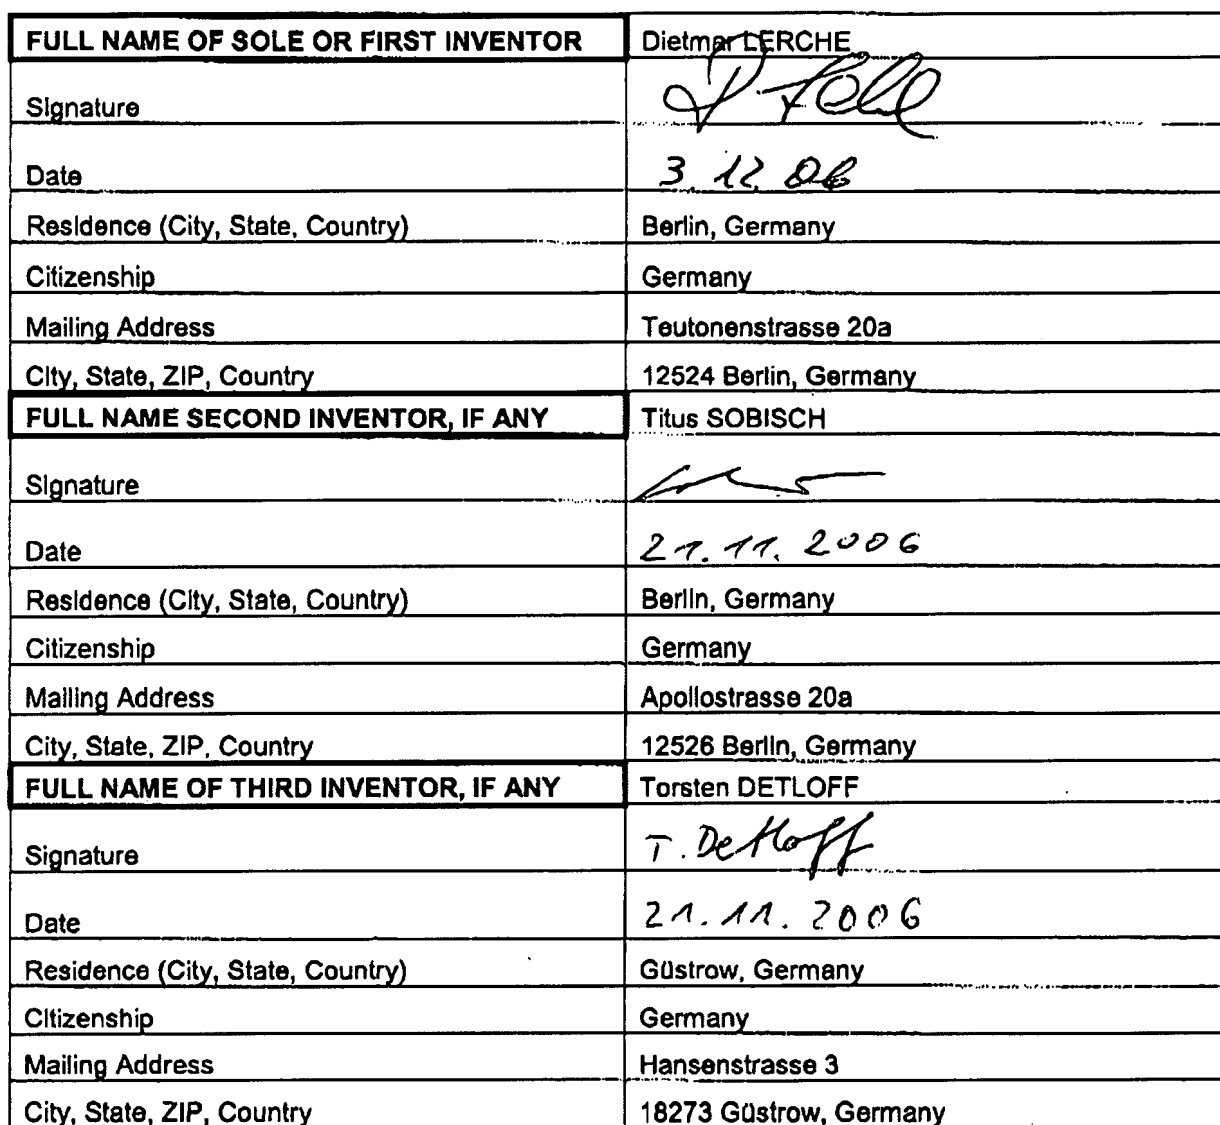 FULL NAME OF SOLE OR FIRST INVENTOR Dietmar LERCHE
Signature
Date 3.12.06
Residence (City, State, Country) Berlin, Germany
Citizenship Germany
Mailing Address Teutonenstrasse 20a
City, State, ZIP, Country 12524 Berlin, Germany
FULL NAME SECOND INVENTOR, IF ANY Titus SOBISCH
Signature
Date 21.11.2006
Residence (City, State, Country) Berlin, Germany
Citizenship Germany
Mailing Address Apollostrasse 20a
City, State, ZIP, Country 12526 Berlin, Germany
FULL NAME OF THIRD INVENTOR, IF ANY Torsten DETLOFF
Signature T. Detloff
Date 21.11.2006
Residence (City, State, Country) Güstrow, Germany
Citizenship Germany
Mailing Address Hansenstrasse 3
City, State, ZIP, Country 18273 Güstrow, Germany